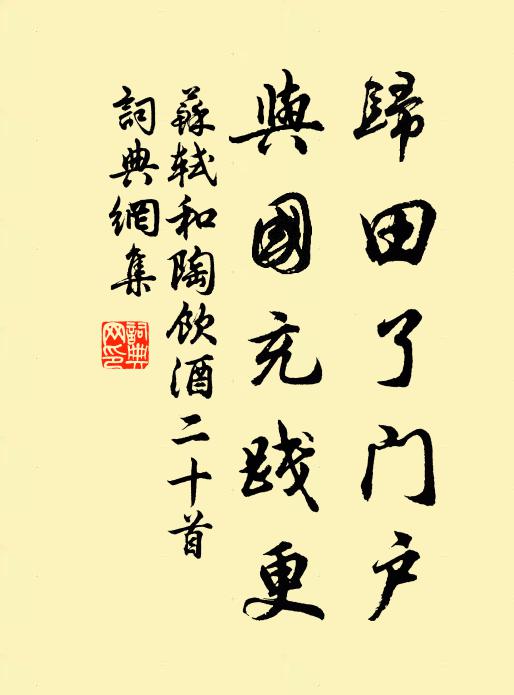 歸田了门户
與國充践更
蘇軾和陶飲酒二十首
詞典網集
詞典
网印